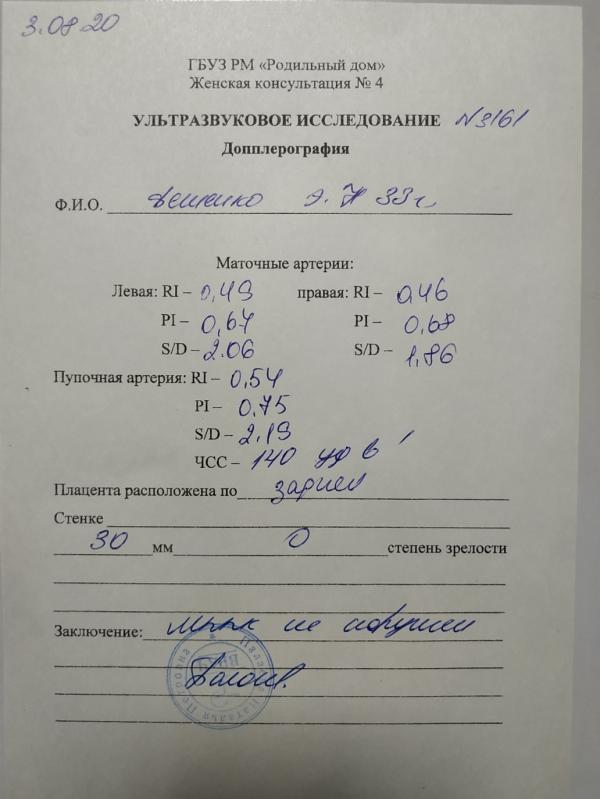 3.08.20
ГБУЗ РМ «Родильный дом»
Женская консультация № 4
УЛЬТРАЗВУКОВОЕ ИССЛЕДОВАНИЕ N3161
Допплерография
Ф.И.О. 33г.
Маточные артерии:
Левая: RI – 0,49 правая: RI – 0,46
PI – 0,67 PI – 0,68
S/D – 2.06 S/D – 1,86
Пупочная артерия: RI – 0,54
PI – 0,75
S/D – 2,19
ЧСС – 140 уд в '
Плацента расположена по задней
Стенке
30 мм 0 степень зрелости
Заключение: мппк не нарушен
Наталья Петровна